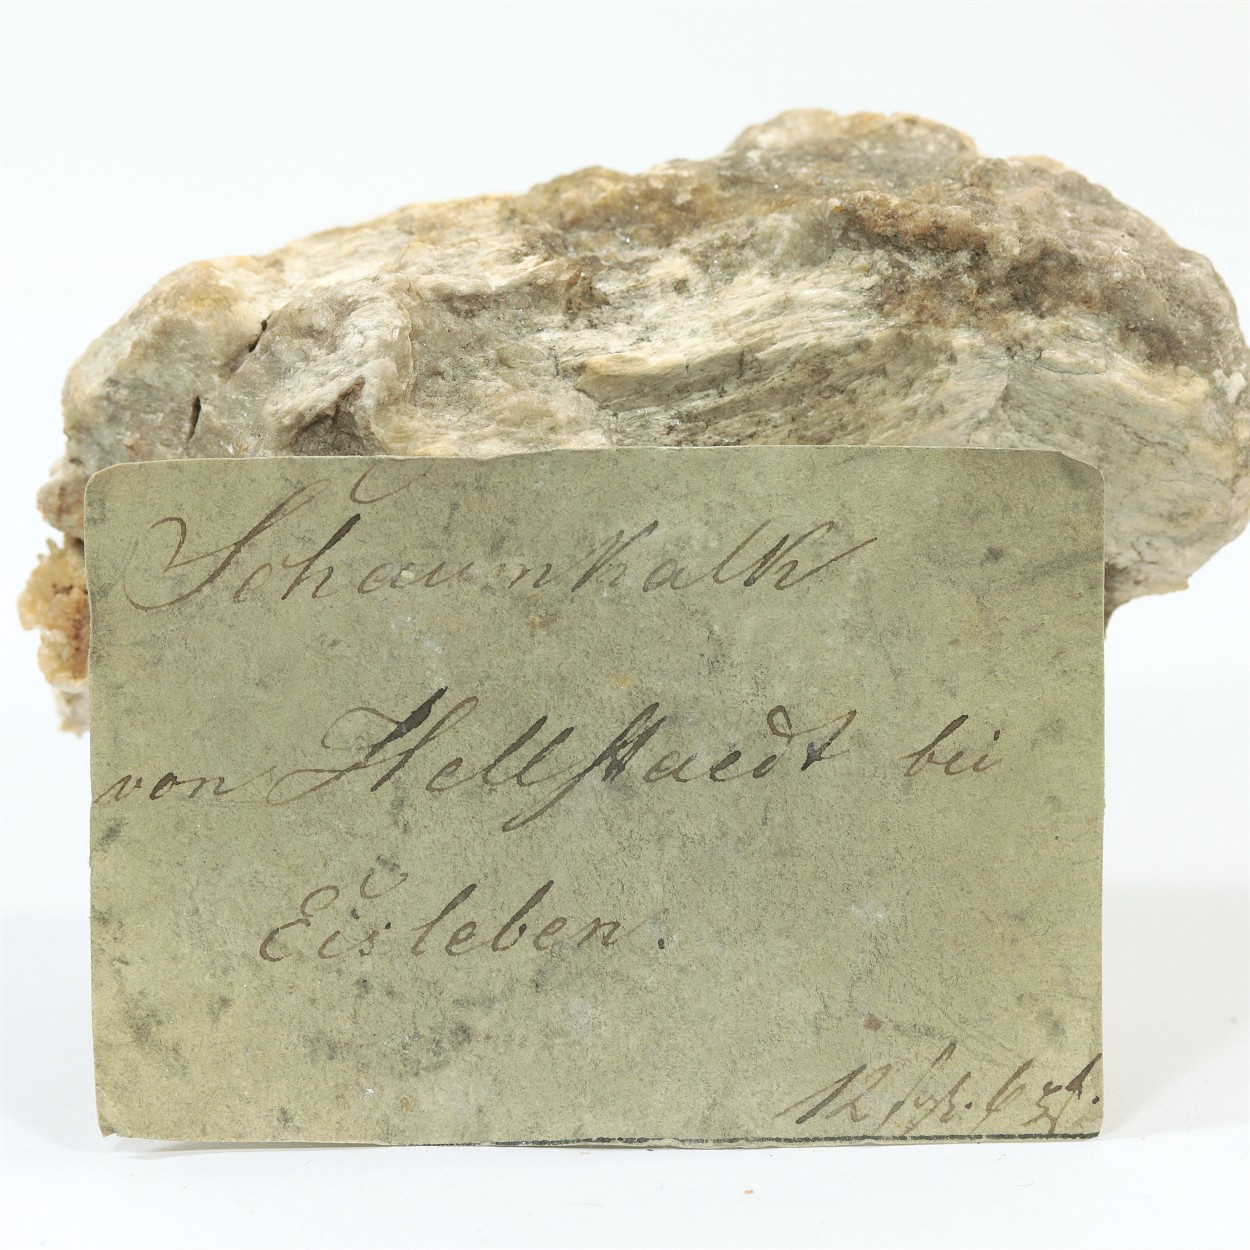 Schaumkalk
von Hellstaedt bei
Eisleben.
12